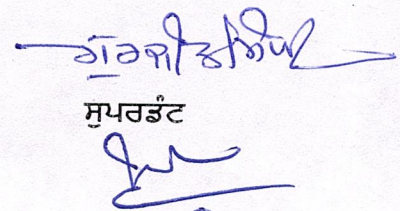 ਗੁਰਜੀਤ ਸਿੰਘ
ਸੁਪਰਡੰਟ